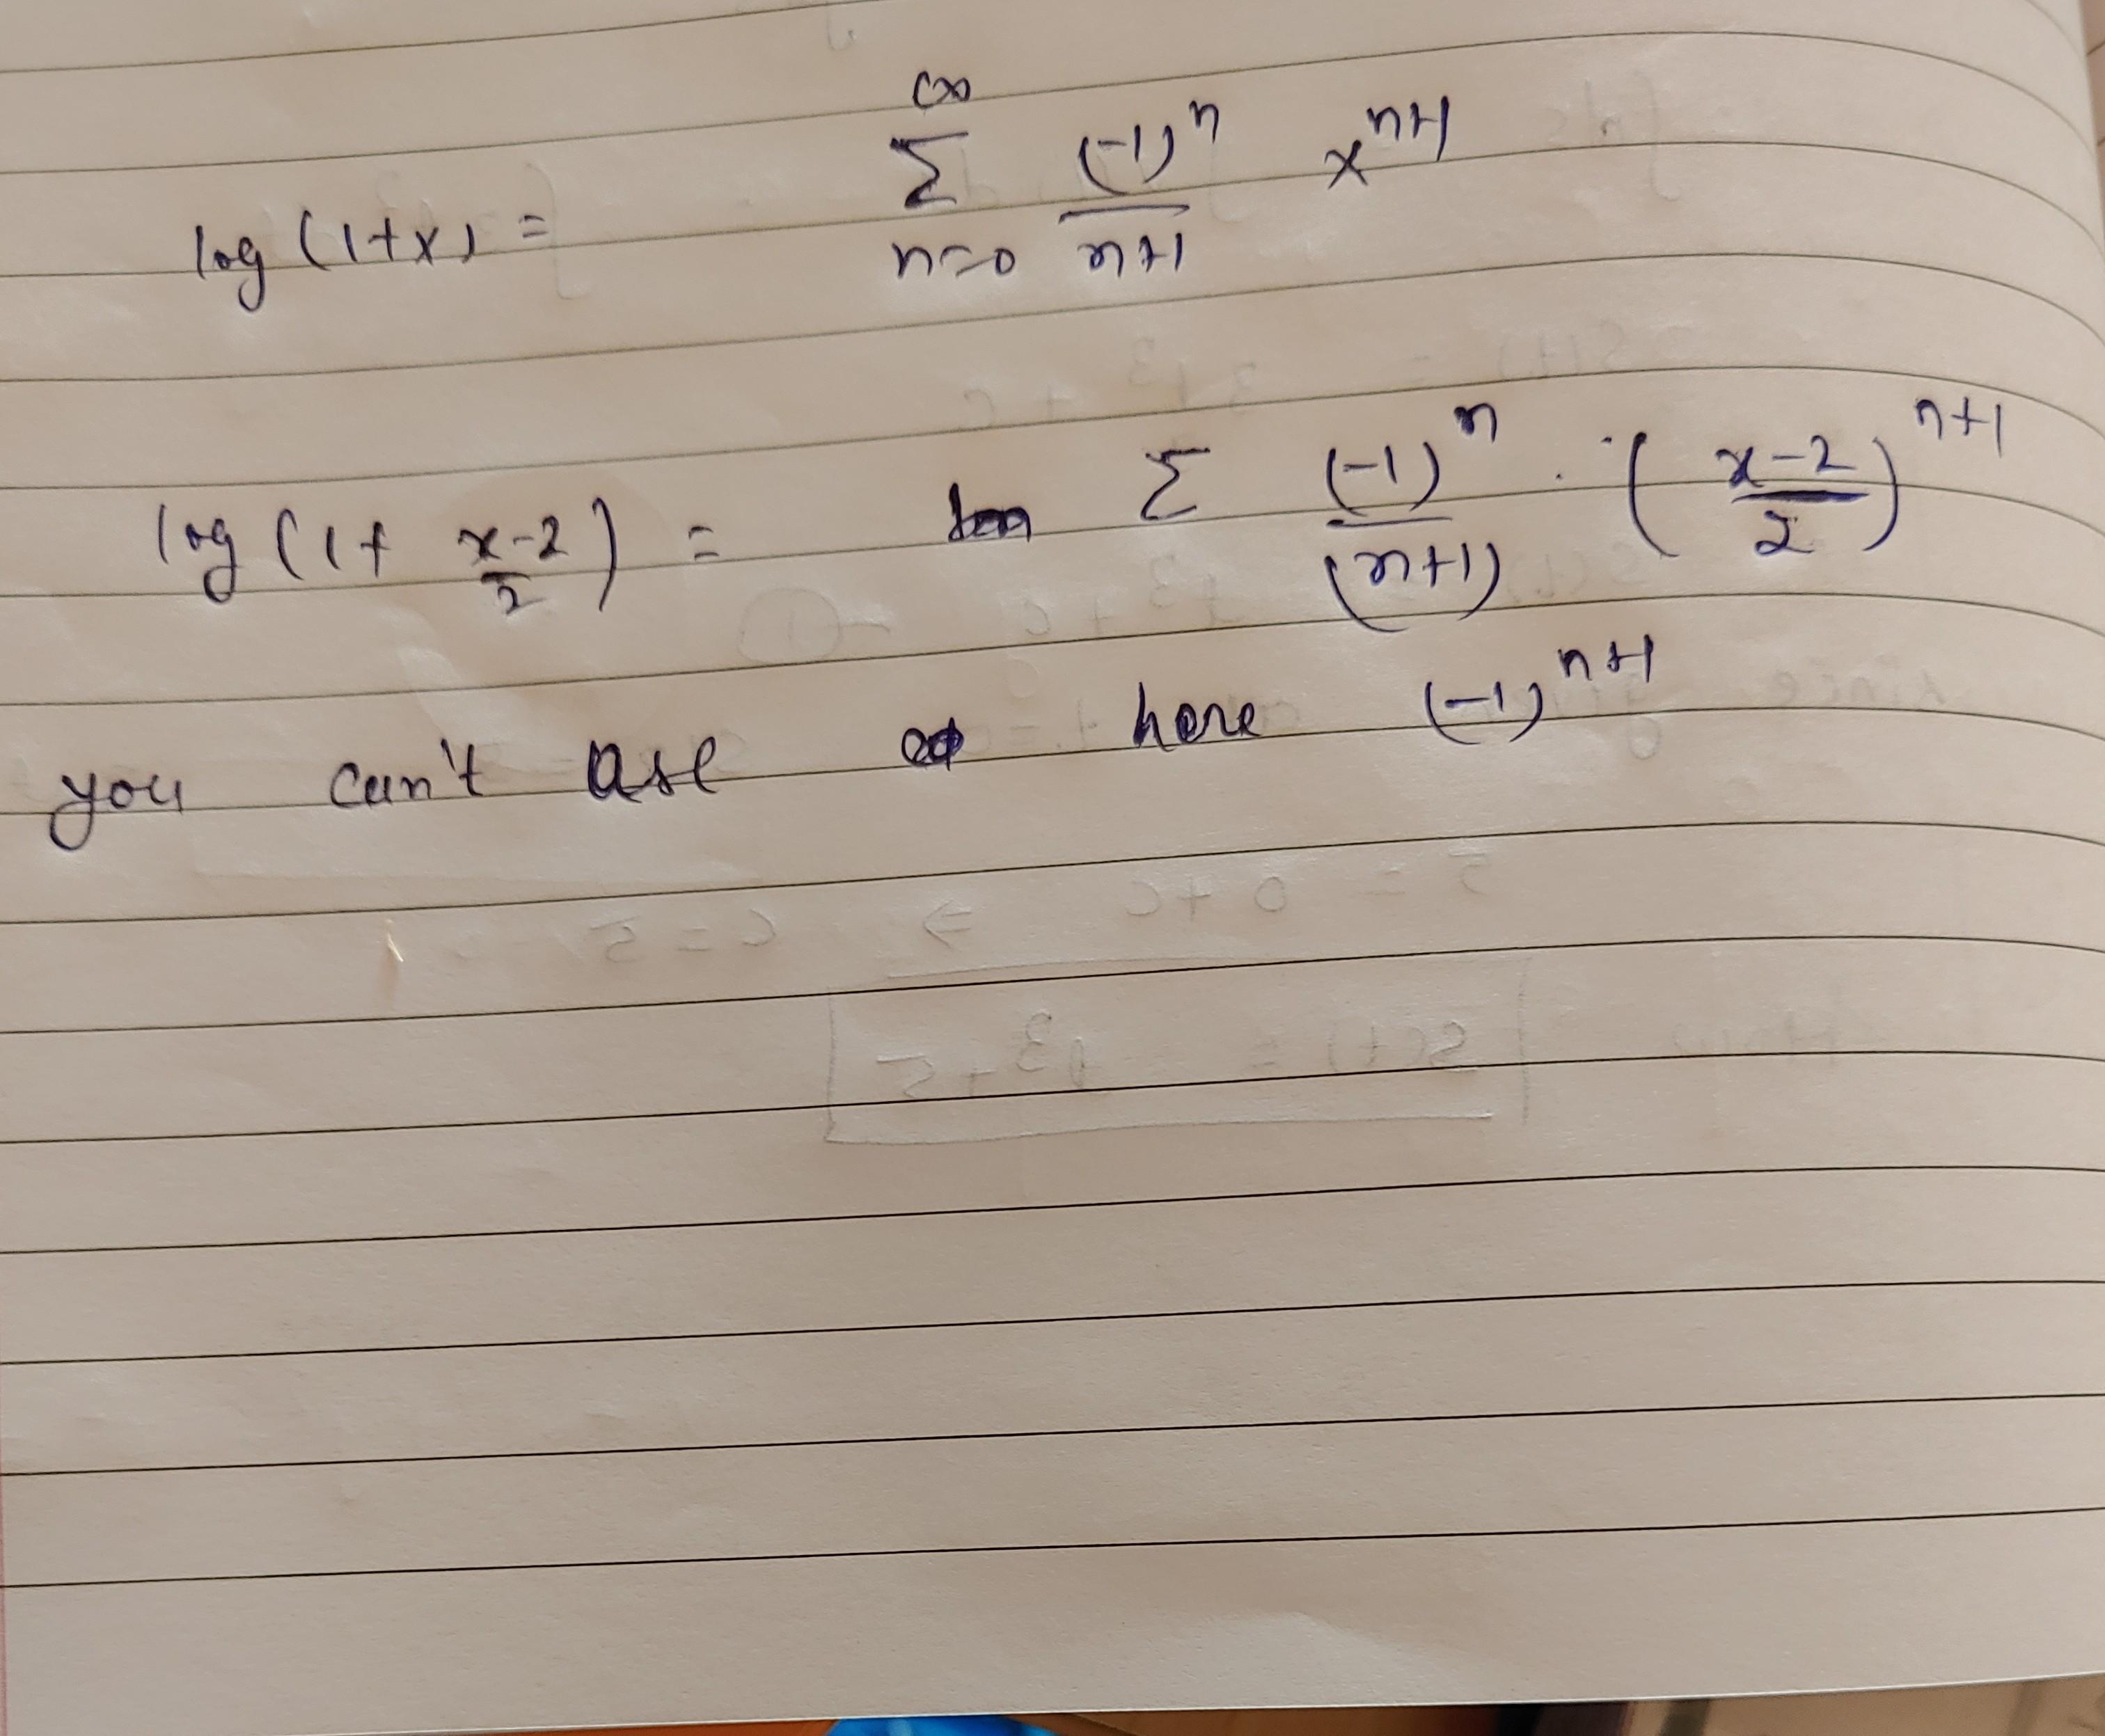 log (1+x) = ∞ Σ n=0 (-1)^n / n+1 x^n+1
log (1+ x-2 / 2) = Σ (-1)^n / (n+1) · (x-2 / 2)^n+1
you can't use here (-1)^n+1